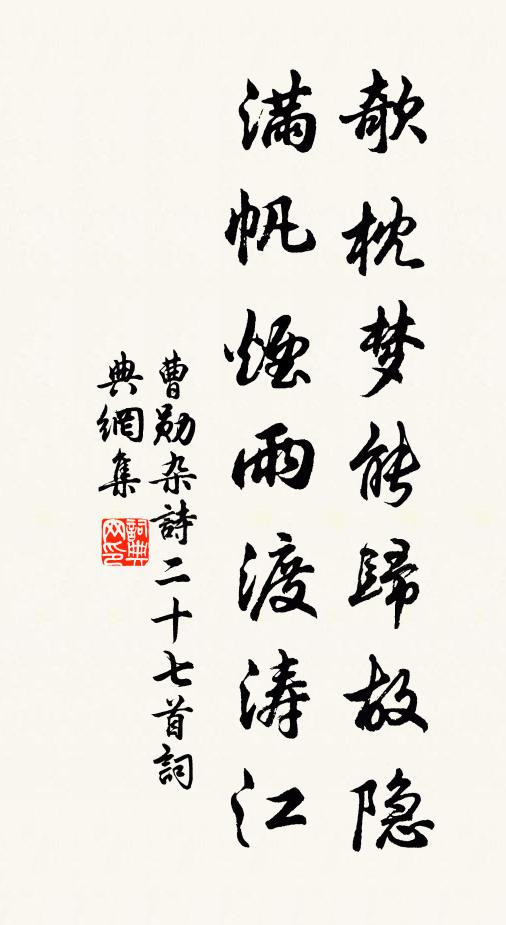 欹枕梦能歸故隐
滿帆煙雨渡涛江
曹勋杂詩二十七首詞
典網集
詞典網印